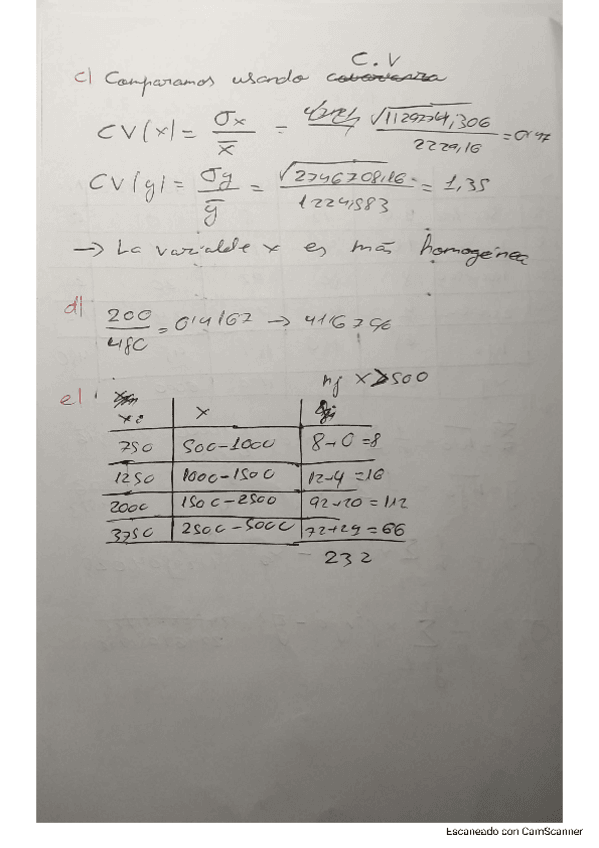 C.V
c) Comparamos usando
CV(x) = σx / x̄ = √1129274,306 / 2229,16 = 0'47
CV(y) = σy / ȳ = √2746708,16 / 1224,583 = 1,35
→ La variable x es más homogénea
d) 200 / 480 = 0'4167 → 41'67%
e) nj x>500
xi | x
750 | 500-1000 | 8+0=8
1250 | 1000-1500 | 12+4=16
2000 | 1500-2500 | 92+20=112
3750 | 2500-5000 | 72+24=66
232
Escaneado con CamScanner